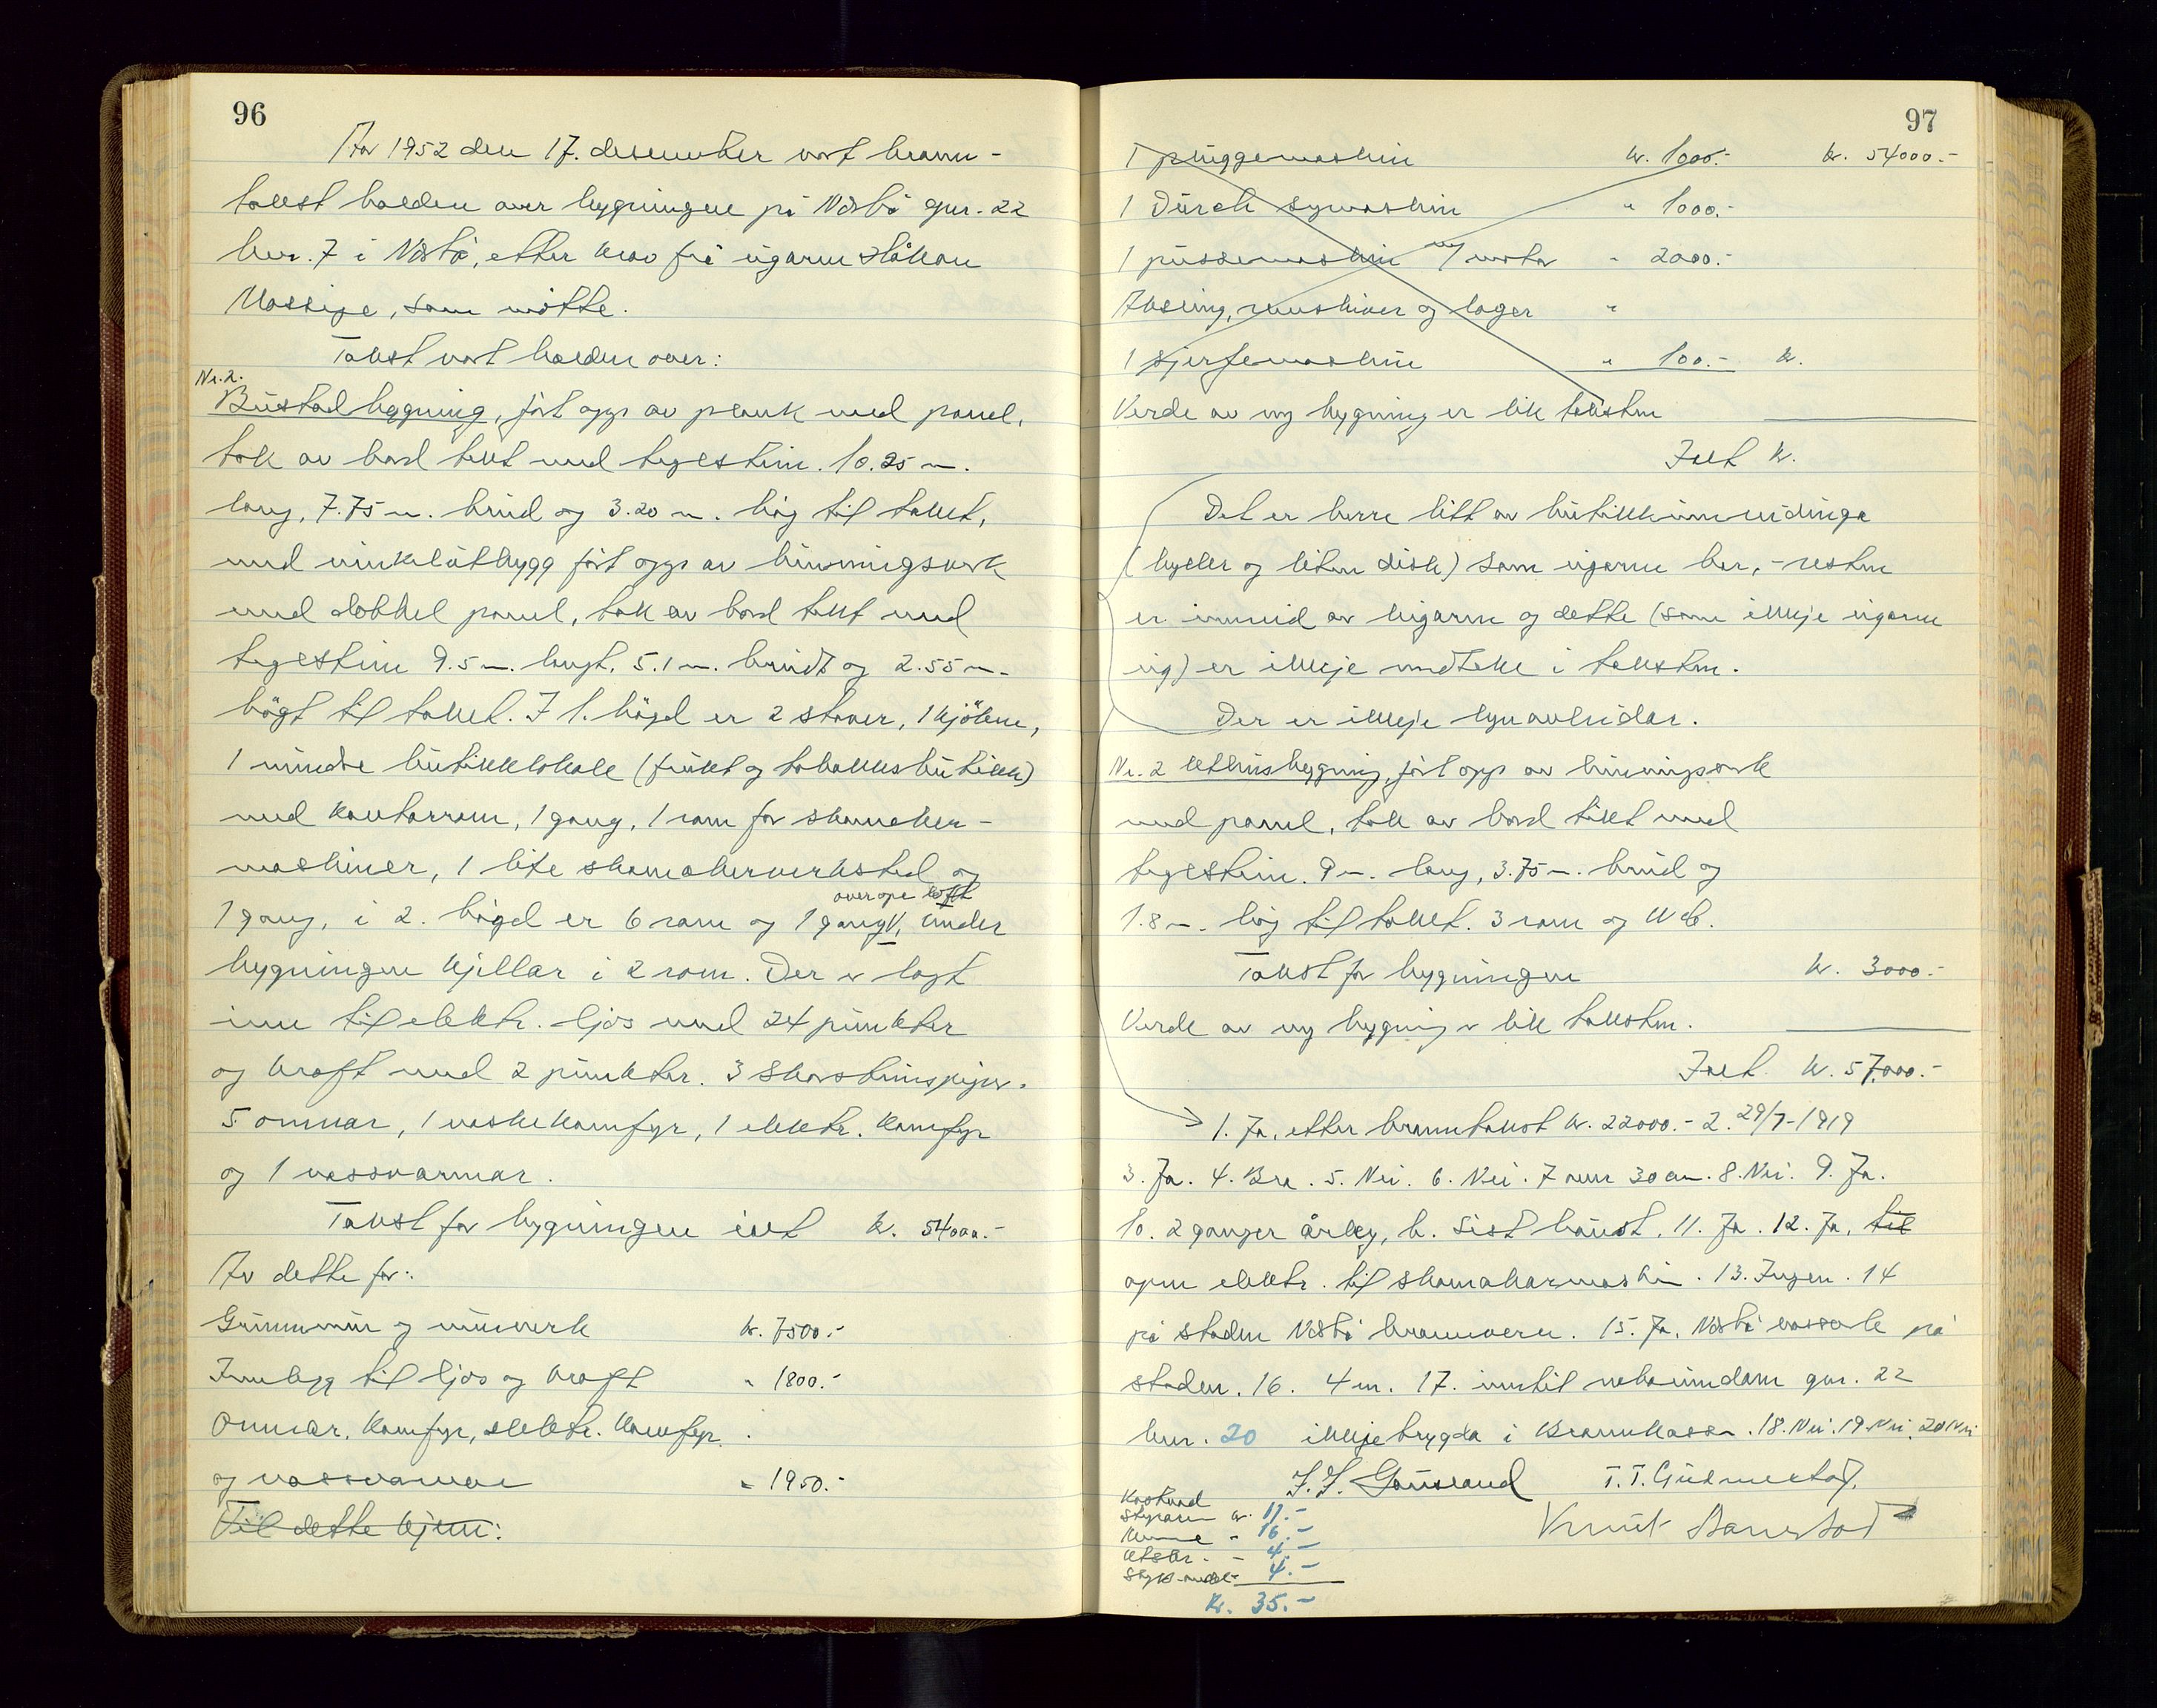 96
År 1952 den 17. desember vart brann-
takst halden over bygningene på Nærbø gnr. 22
bnr. 7 i Nærbø, etter krav frå eigaren Håkon
som møtte.
Takst vart halden over:
Nr. 2.
Bustadbygning, ført opp av plank med panel,
tak av bord tekt med teglstein. 10.25 m.
lang, 7.75 m. breid og 3.20 m. høg til taket,
med vinkelutbygg ført opp av binningsverk
med dobbel panel, tak av bord tekt med
teglstein 9.5 m. langt, 5.1 m. breidt og 2.55 m.
høgt til taket. I 1. høgd er 2 stover, 1 kjøken,
1 mindre butikklokale (frukt og tobakksbutikk)
med kontorrom, 1 gang, 1 rom for skomaker-
maskiner, 1 lite skomakerverkstad og
over ope loft
1 gang, i 2. høgd er 6 rom og 1 gang, under
bygningen kjellar i 2 rom. Der er lagt
inn til elektr. ljos med 24 punkter
og kraft med 2 punkter. 3 skorsteinspiper.
5 omnar, 1 vaskekomfyr, 1 elektr. komfyr
og 1 vassvarmar.
Takst for bygningen ialt kr. 54000.-
Av dette for:
Grunnmur og murverk kr. 7500.-
Innlegg til ljos og kraft " 1800.-
Omnar, komfyr, elektr. komfyr
og vassvarmar " 1950.-
Til dette kjem:
97
1 pluggemaskin kr. 1000.- kr. 54000.-
1 Dürck symaskin " 1000.-
1 pussemaskin m/ motor " 2000.-
Aksling, remskiver og lager "
1 skjerfemaskin " 100.- kr.
Verde av ny bygning er lik taksten
Ialt kr.
Det er berre litt av butikkinnreidinga
(hyller og liten disk) som eigaren har, - resten
er innreid av leigaren og dette (som ikkje eigaren
eig) er ikkje medteke i taksten.
Der er ikkje lynavleidar.
Nr. 2 Uthusbygning, ført opp av binningsverk
med panel, tak av bord tekt med
teglstein. 9 m. lang, 3.75 m. breid og
1.8 m. høg til taket. 3 rom og W.C.
Takst for bygningen kr. 3000.-
Verde av ny bygning er lik taksten.
Ialt. kr. 57,000.-
1. Ja, etter branntakst kr. 22000.- 2. 29/7-1919
3. Ja. 4. Bra. 5. Nei. 6. Nei. 7 over 30 cm. 8. Nei. 9. Ja.
10. 2 ganger årleg, b. Sist haust. 11. Ja. 12. Ja, til
open elektr. til skomakarmaskin. 13. Ingen. 14
på staden Nærbø brannvern. 15. Ja, Nærbø vassverk på
staden. 16. 4 m. 17. inntil naboeindom gnr. 22
bnr. 20 ikkje trygda i Brannkassa. 18. Nei. 19. Nei. 20 Nei
T. T. Gudmestad.
Knut
Kostnad
Styraren kr. 17.-
" 16.-
Utskr. - 4.-
4.-
kr. 35.-